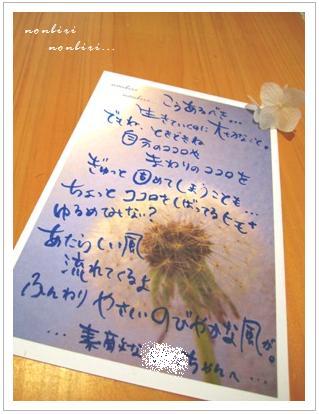 nonbiri
nonbiri...
nonbiri
nonbiri...
こうあるべき...
生きていくのに 大切なこと。
でもね、ときどきね
自分のココロや
まわりのココロを
ぎゅっと 固めてしまうことも...
ちょっと ココロをしばってるヒモを
ゆるめてみない?
あたらしい風
流れてくるよ
ふんわり やさしいのびやかな風が。
... 素直な ちゃんへ...